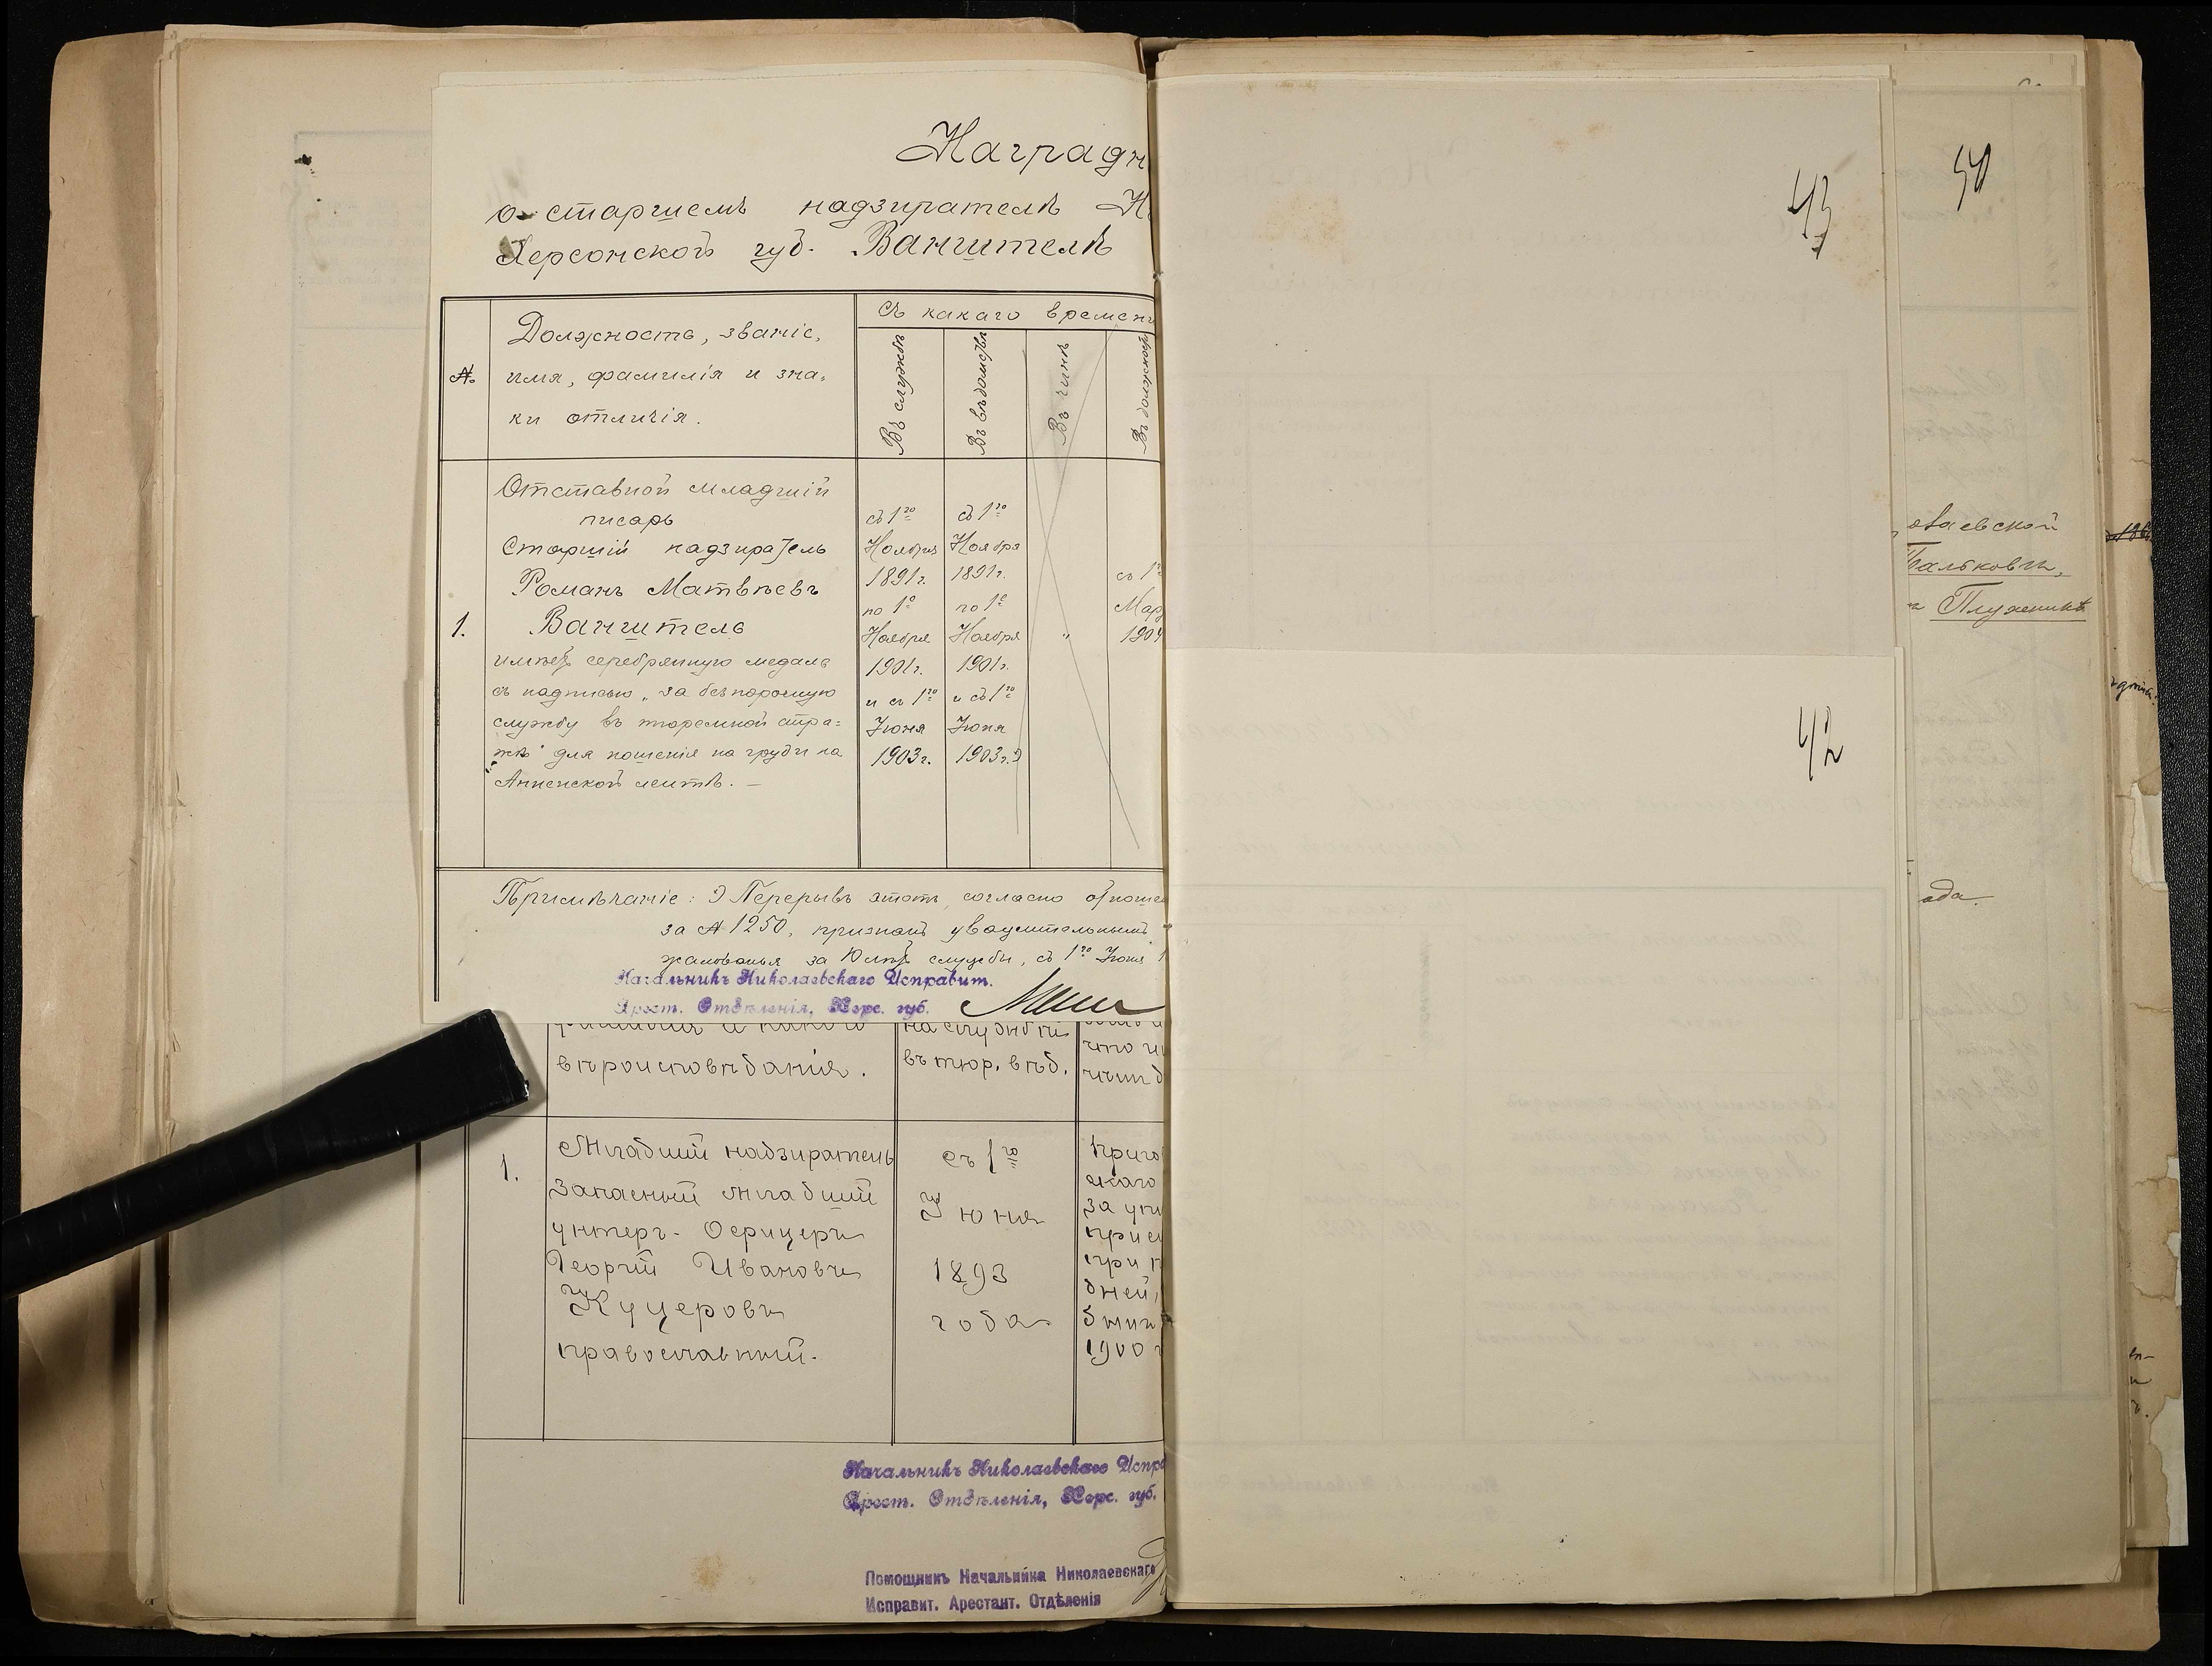 Наградн
о старшемъ надзирателѣ Н
Херсонской губ. Ванштелѣ
№
Должность, званіе,
имя, фамилія и зна-
ки отличія.
Съ какаго времени
Въ службѣ
Въ вѣдомствѣ
Въ чинѣ
Въ должности
1.
Отставной младшій
писарь
Старшій надзиратель
Романъ Матвѣевъ
Ванштель
имѣетъ серебрянную медаль
съ надписью „за безпорочную
службу въ тюремной стра-
жѣ" для ношенія на груди на
Анненской лентѣ. —
съ 1го
Ноября
1891 г.
по 1е
Ноября
1901 г.
и съ 1го
Іюня
1903 г.
съ 1го
Ноября
1891 г.
по 1е
Ноября
1901 г.
и съ 1го
Іюня
1903 г.
"
съ 1го
Мар
1904
Примѣчаніе: Перерывъ этотъ, согласно отноше
за № 1250, признанъ уважительнымъ
жалованья за 10 лѣтъ службы, съ 1го Іюня 1
Начальникъ Николаевскаго Исправит.
Арест. Отдѣленія, Херс. губ.
вѣроисповѣданія.
на службѣ
въ тюр. вѣд.
1.
Младшій надзиратель
запасный младшій
унтеръ-Офицеръ
Георгій Ивановъ
Куцеровъ
православный.
съ 1го
Іюня
1893
года
1900
Начальникъ Николаевскаго Испра
Арест. Отдѣленія, Херс. губ.
Помощникъ Начальника Николаевскаго
Исправит. Арестант. Отдѣленія
43
42
50
олаевской
Плуженикъ
ада.